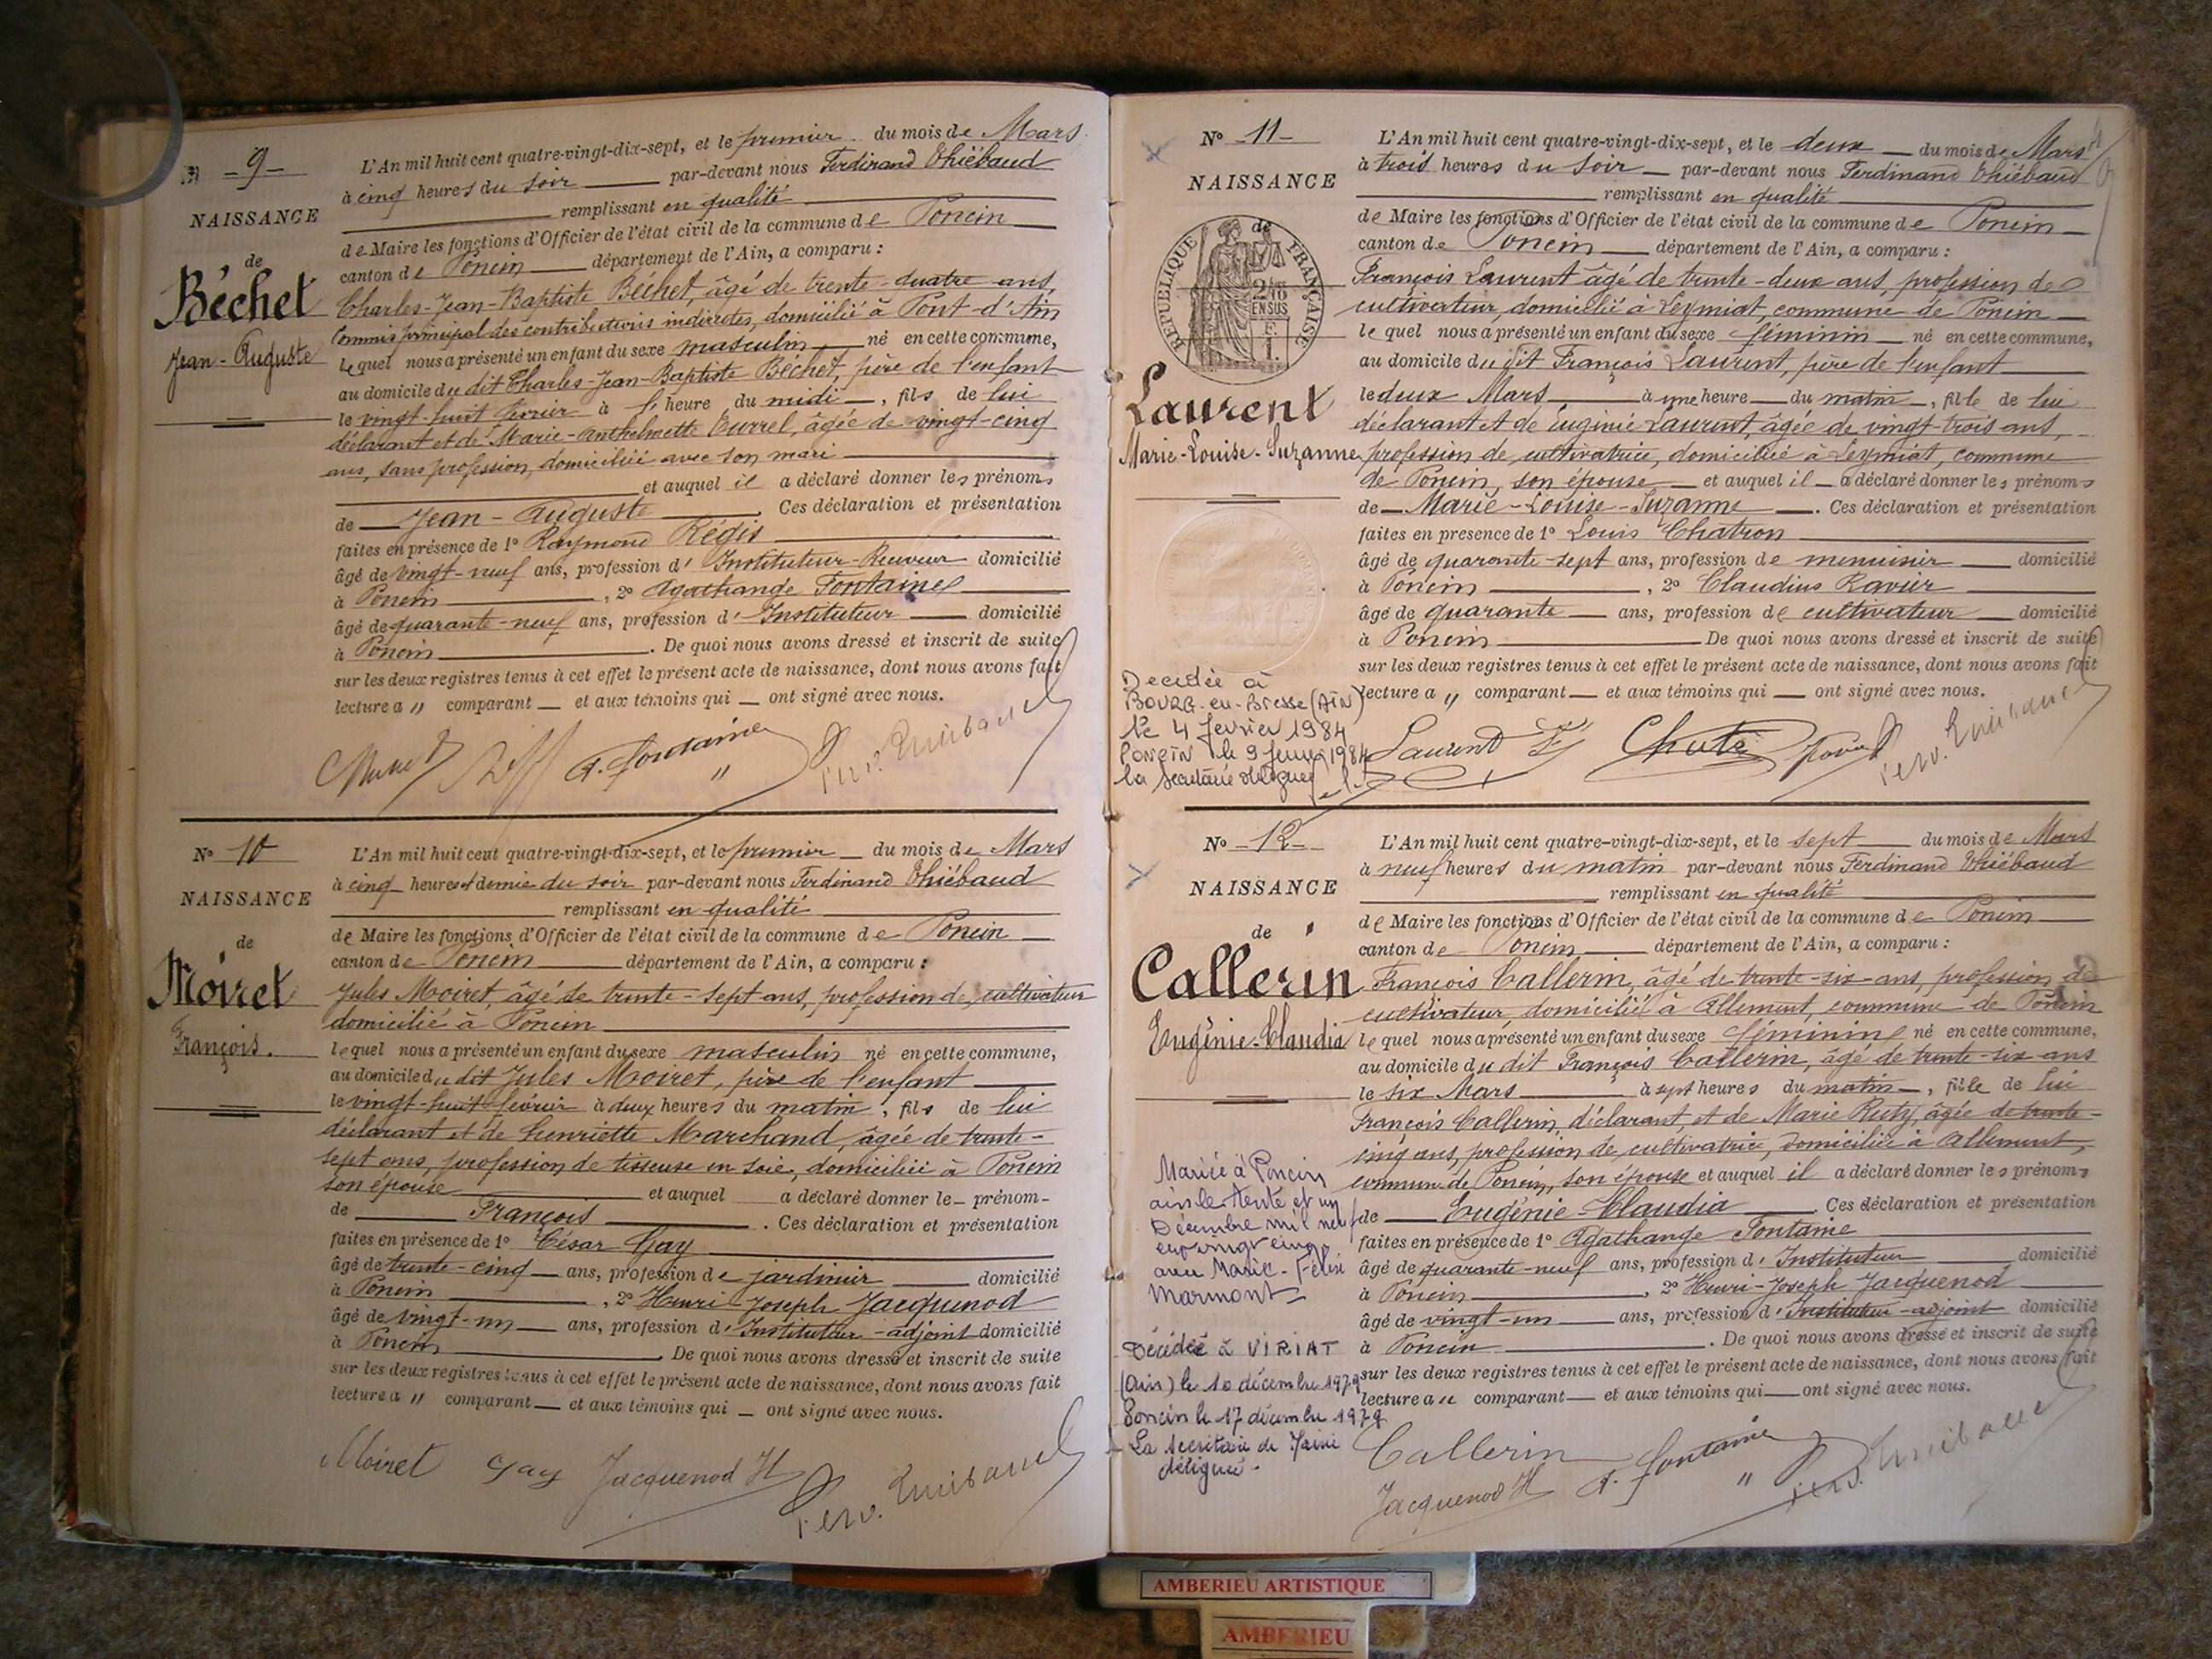 N° - 9 -
NAISSANCE
de
Béchet
Jean-Auguste
L'An mil huit cent quatre-vingt-dix-sept, et le premier du mois de Mars
à cinq heures du soir par-devant nous Ferdinand Thiébaud
remplissant en qualité
de Maire les fonctions d'Officier de l'état civil de la commune de Poncin
canton de Poncin département de l'Ain, a comparu :
Charles-Jean-Baptiste Béchet, âgé de trente-quatre ans,
Commis principal des contributions indirectes, domicilié à Pont-d'Ain
lequel nous a présenté un enfant du sexe masculin né en cette commune,
au domicile du dit Charles-Jean-Baptiste Béchet, père de l'enfant
le vingt-huit février à l'heure du midi, fils de lui
déclarant et de Marie-Anthelmette Burrel, âgée de vingt-cinq
ans, sans profession, domiciliée avec son mari
et auquel il a déclaré donner les prénoms
de Jean-Auguste . Ces déclaration et présentation
faites en présence de 1° Raymond Régis
âgé de vingt-neuf ans, profession d'Instituteur- domicilié
à Poncin , 2° Agathange Fontaine
âgé de quarante-neuf ans, profession d'Instituteur domicilié
à Poncin . De quoi nous avons dressé et inscrit de suite
sur les deux registres tenus à cet effet le présent acte de naissance, dont nous avons fait
lecture a " comparant et aux témoins qui ont signé avec nous.
A. Fontaine
N° 10
NAISSANCE
de
Moiret
François.
L'An mil huit cent quatre-vingt-dix-sept, et le premier du mois de Mars
à cinq heures et demie du soir par-devant nous Ferdinand Thiébaud
remplissant en qualité
de Maire les fonctions d'Officier de l'état civil de la commune de Poncin
canton de Poncin département de l'Ain, a comparu :
Jules Moiret, âgé de trente-sept ans, profession de cultivateur
domicilié à Poncin
lequel nous a présenté un enfant du sexe masculin né en cette commune,
au domicile du dit Jules Moiret, père de l'enfant
le vingt-huit février à deux heures du matin, fils de lui
déclarant et de Henriette Marchand, âgée de trente-
sept ans, profession de tisseuse en soie, domiciliée à Poncin
son épouse et auquel a déclaré donner le prénom
de François . Ces déclaration et présentation
faites en présence de 1° César Gay
âgé de trente-cinq ans, profession de jardinier domicilié
à Poncin , 2° Henri-Joseph Jacquenod
âgé de vingt-un ans, profession d'Instituteur-adjoint domicilié
à Poncin . De quoi nous avons dressé et inscrit de suite
sur les deux registres tenus à cet effet le présent acte de naissance, dont nous avons fait
lecture a " comparant et aux témoins qui ont signé avec nous.
Moiret Gay Jacquenod H
N° - 11 -
NAISSANCE
de
REPUBLIQUE FRANÇAISE
2/10
EN SUS
Laurent
Marie-Louise-Suzanne
L'An mil huit cent quatre-vingt-dix-sept, et le deux du mois de Mars
à trois heures du soir par-devant nous Ferdinand Thiébaud
remplissant en qualité
de Maire les fonctions d'Officier de l'état civil de la commune de Poncin
canton de Poncin département de l'Ain, a comparu :
François Laurent âgé de trente-deux ans, profession de
cultivateur, domicilié à Leymiat, commune de Poncin
lequel nous a présenté un enfant du sexe féminin né en cette commune,
au domicile du dit François Laurent, père de l'enfant
le deux Mars à une heure du matin, fille de lui
déclarant et de Eugénie Laurent, âgée de vingt-trois ans,
profession de cultivatrice, domiciliée à Leymiat, commune
de Poncin, son épouse et auquel il a déclaré donner les prénoms
de Marie-Louise-Suzanne . Ces déclaration et présentation
faites en presence de 1° Louis Chatron
âgé de quarante-sept ans, profession de menuisier domicilié
à Poncin , 2° Claudius Ravier
âgé de quarante ans, profession de cultivateur domicilié
à Poncin De quoi nous avons dressé et inscrit de suite
sur les deux registres tenus à cet effet le présent acte de naissance, dont nous avons fait
lecture a " comparant et aux témoins qui ont signé avec nous.
Decedée à
BOURG-en-Bresse (AIN)
le 4 février 1984
Poncin le 9 1984
la Secrétaire
Laurent
N° - 12 -
NAISSANCE
de
Callerin
Eugénie-Claudia
L'An mil huit cent quatre-vingt-dix-sept, et le sept du mois de Mars
à neuf heures du matin par-devant nous Ferdinand Thiébaud
remplissant en qualité
de Maire les fonctions d'Officier de l'état civil de la commune de Poncin
canton de Poncin département de l'Ain, a comparu :
François Callerin, âgé de trente-six ans, profession de
cultivateur, domicilié à Allement, commune de Poncin
lequel nous a présenté un enfant du sexe féminin né en cette commune,
au domicile du dit François Callerin, âgé de trente-six ans
le six Mars à sept heures du matin, fille de lui
François Callerin, déclarant, et de Marie Ruty, âgée de trente-
cinq ans, profession de cultivatrice, domiciliée à Allement,
commune de Poncin, son épouse et auquel il a déclaré donner les prénoms
de Eugénie-Claudia . Ces déclaration et présentation
faites en présence de 1° Agathange Fontaine
âgé de quarante-neuf ans, profession d'Instituteur domicilié
à Poncin , 2° Henri-Joseph Jacquenod
âgé de vingt-un ans, profession d'Instituteur-adjoint domicilié
à Poncin . De quoi nous avons dressé et inscrit de suite
sur les deux registres tenus à cet effet le présent acte de naissance, dont nous avons fait
lecture a u comparant et aux témoins qui ont signé avec nous.
Mariée à Poncin
ain le trente et un
Décembre mil neuf
cent vingt cinq
avec Marie-Félix
Marmont
Décédée à VIRIAT
(Ain) le 10 décembre 1979
Poncin le 17 décembre 1979
La secrétaire de Mairie
déléguée.
Callerin A. Fontaine
Jacquenod H
AMBERIEU ARTISTIQUE
AMBERIEU